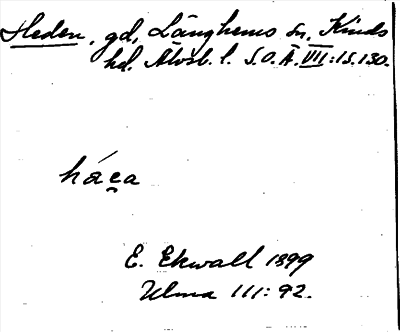 Heden, gd, Länghems sn, Kinds
hd. Älvsb. l. S.O.Ä. VII:1 s. 130.
háca
E. Ekwall 1899
Ulma 111:92.